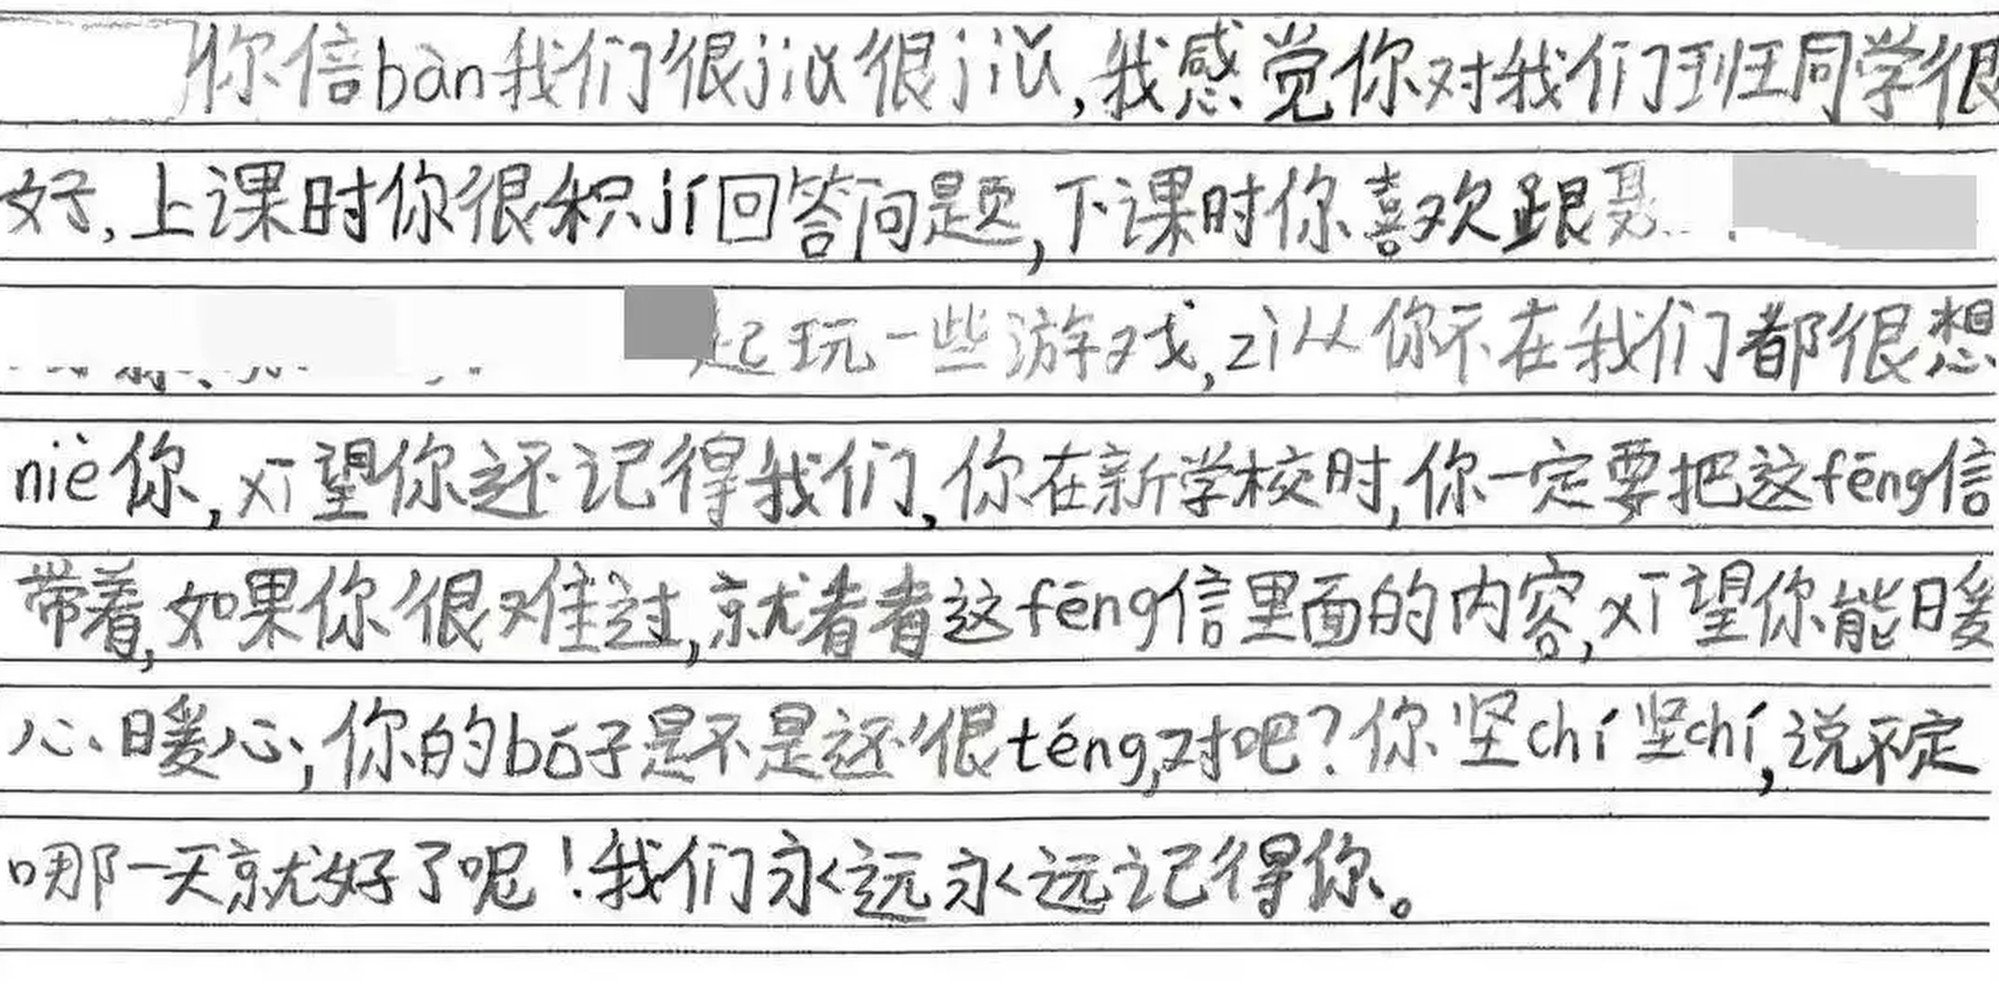 你倍bàn我们很jiǔ很jiǔ,我感觉你对我们班同学很
好,上课时你很积jí回答问题,下课时你喜欢跟聂
起玩一些游戏,zì从你不在我们都很想
niè你,xī望你还记得我们,你在新学校时,你一定要把这fēng信
带着,如果你很难过,就者者这fēng信里面的内容,xī望你能暖
心暖心;你的bó子是不是还很téng,对吧?你坚chí坚chí,说不定
哪一天就好了呢!我们永远永远记得你。